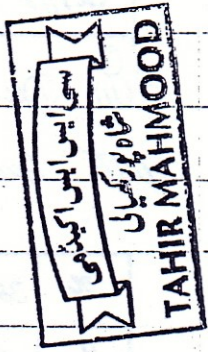 سی ایس ایس اکیڈمی
شاہ پور کیمپ
TAHIR MAHMOOD